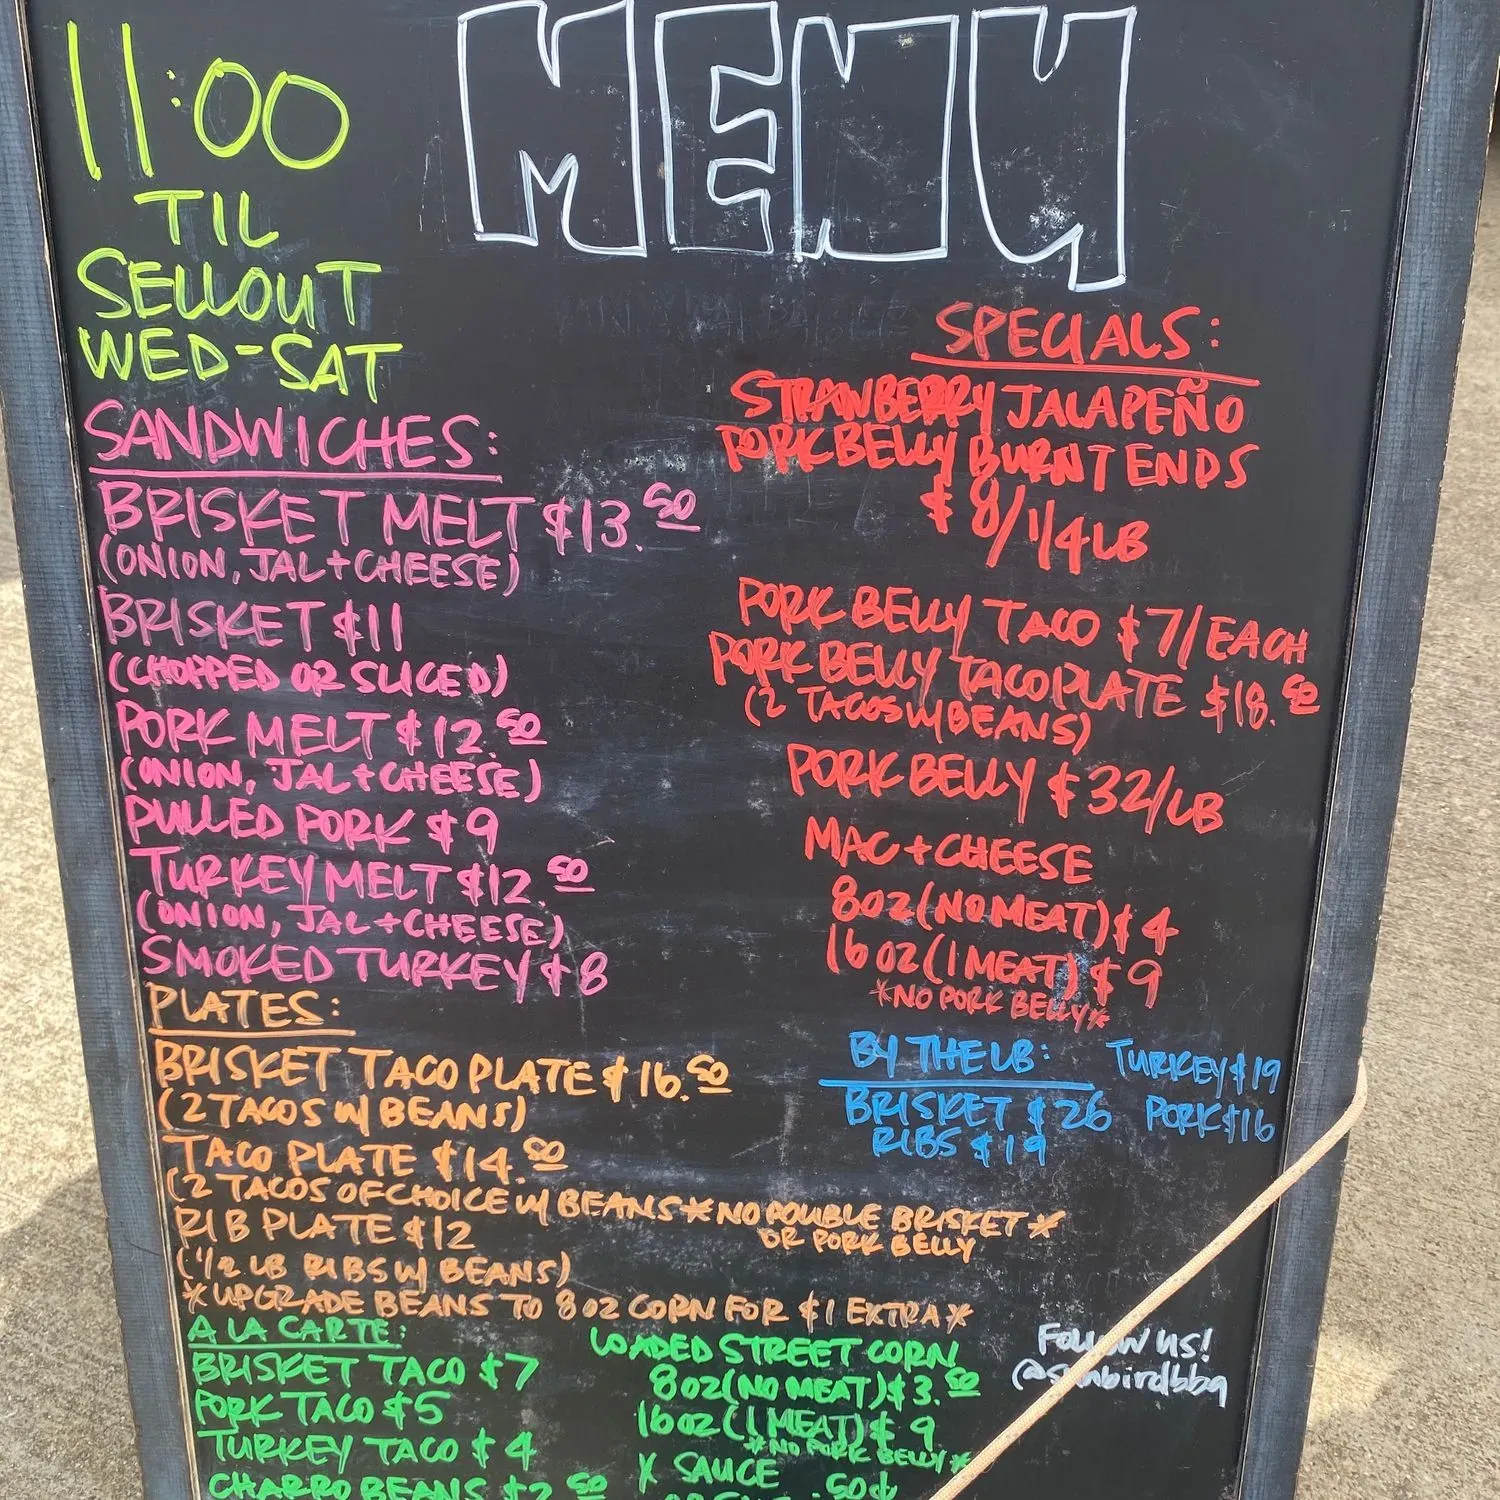 MENU
11:00
TIL
SELLOUT
WED-SAT
SANDWICHES:
BRISKET MELT $13.50
(ONION, JAL + CHEESE)
BRISKET $11
(CHOPPED OR SLICED)
PORK MELT $12.50
(ONION, JAL + CHEESE)
PULLED PORK $9
TURKEY MELT $12.50
(ONION, JAL + CHEESE)
SMOKED TURKEY $8
PLATES:
BRISKET TACO PLATE $16.50
(2 TACOS W/ BEANS)
TACO PLATE $14.50
(2 TACOS OF CHOICE W/ BEANS *NO DOUBLE BRISKET*
OR PORK BELLY
RIB PLATE $12
(1/2 LB RIBS W/ BEANS)
*UPGRADE BEANS TO 8 OZ CORN FOR $1 EXTRA*
A LA CARTE:
BRISKET TACO $7
PORK TACO $5
TURKEY TACO $4
CHARRO BEANS $2.50
LOADED STREET CORN
8 OZ (NO MEAT) $3.50
16 OZ (1 MEAT) $9
*NO PORK BELLY*
* SAUCE .50¢
SPECIALS:
STRAWBERRY JALAPEÑO
PORK BELLY BURNT ENDS
$8/1/4 LB
PORK BELLY TACO $7/EACH
PORK BELLY TACO PLATE $18.50
(2 TACOS W/ BEANS)
PORK BELLY $32/LB
MAC + CHEESE
8 OZ (NO MEAT) $4
16 OZ (1 MEAT) $9
*NO PORK BELLY*
BY THE LB:
BRISKET $26
RIBS $19
TURKEY $19
PORK $16
FOLLOW US!